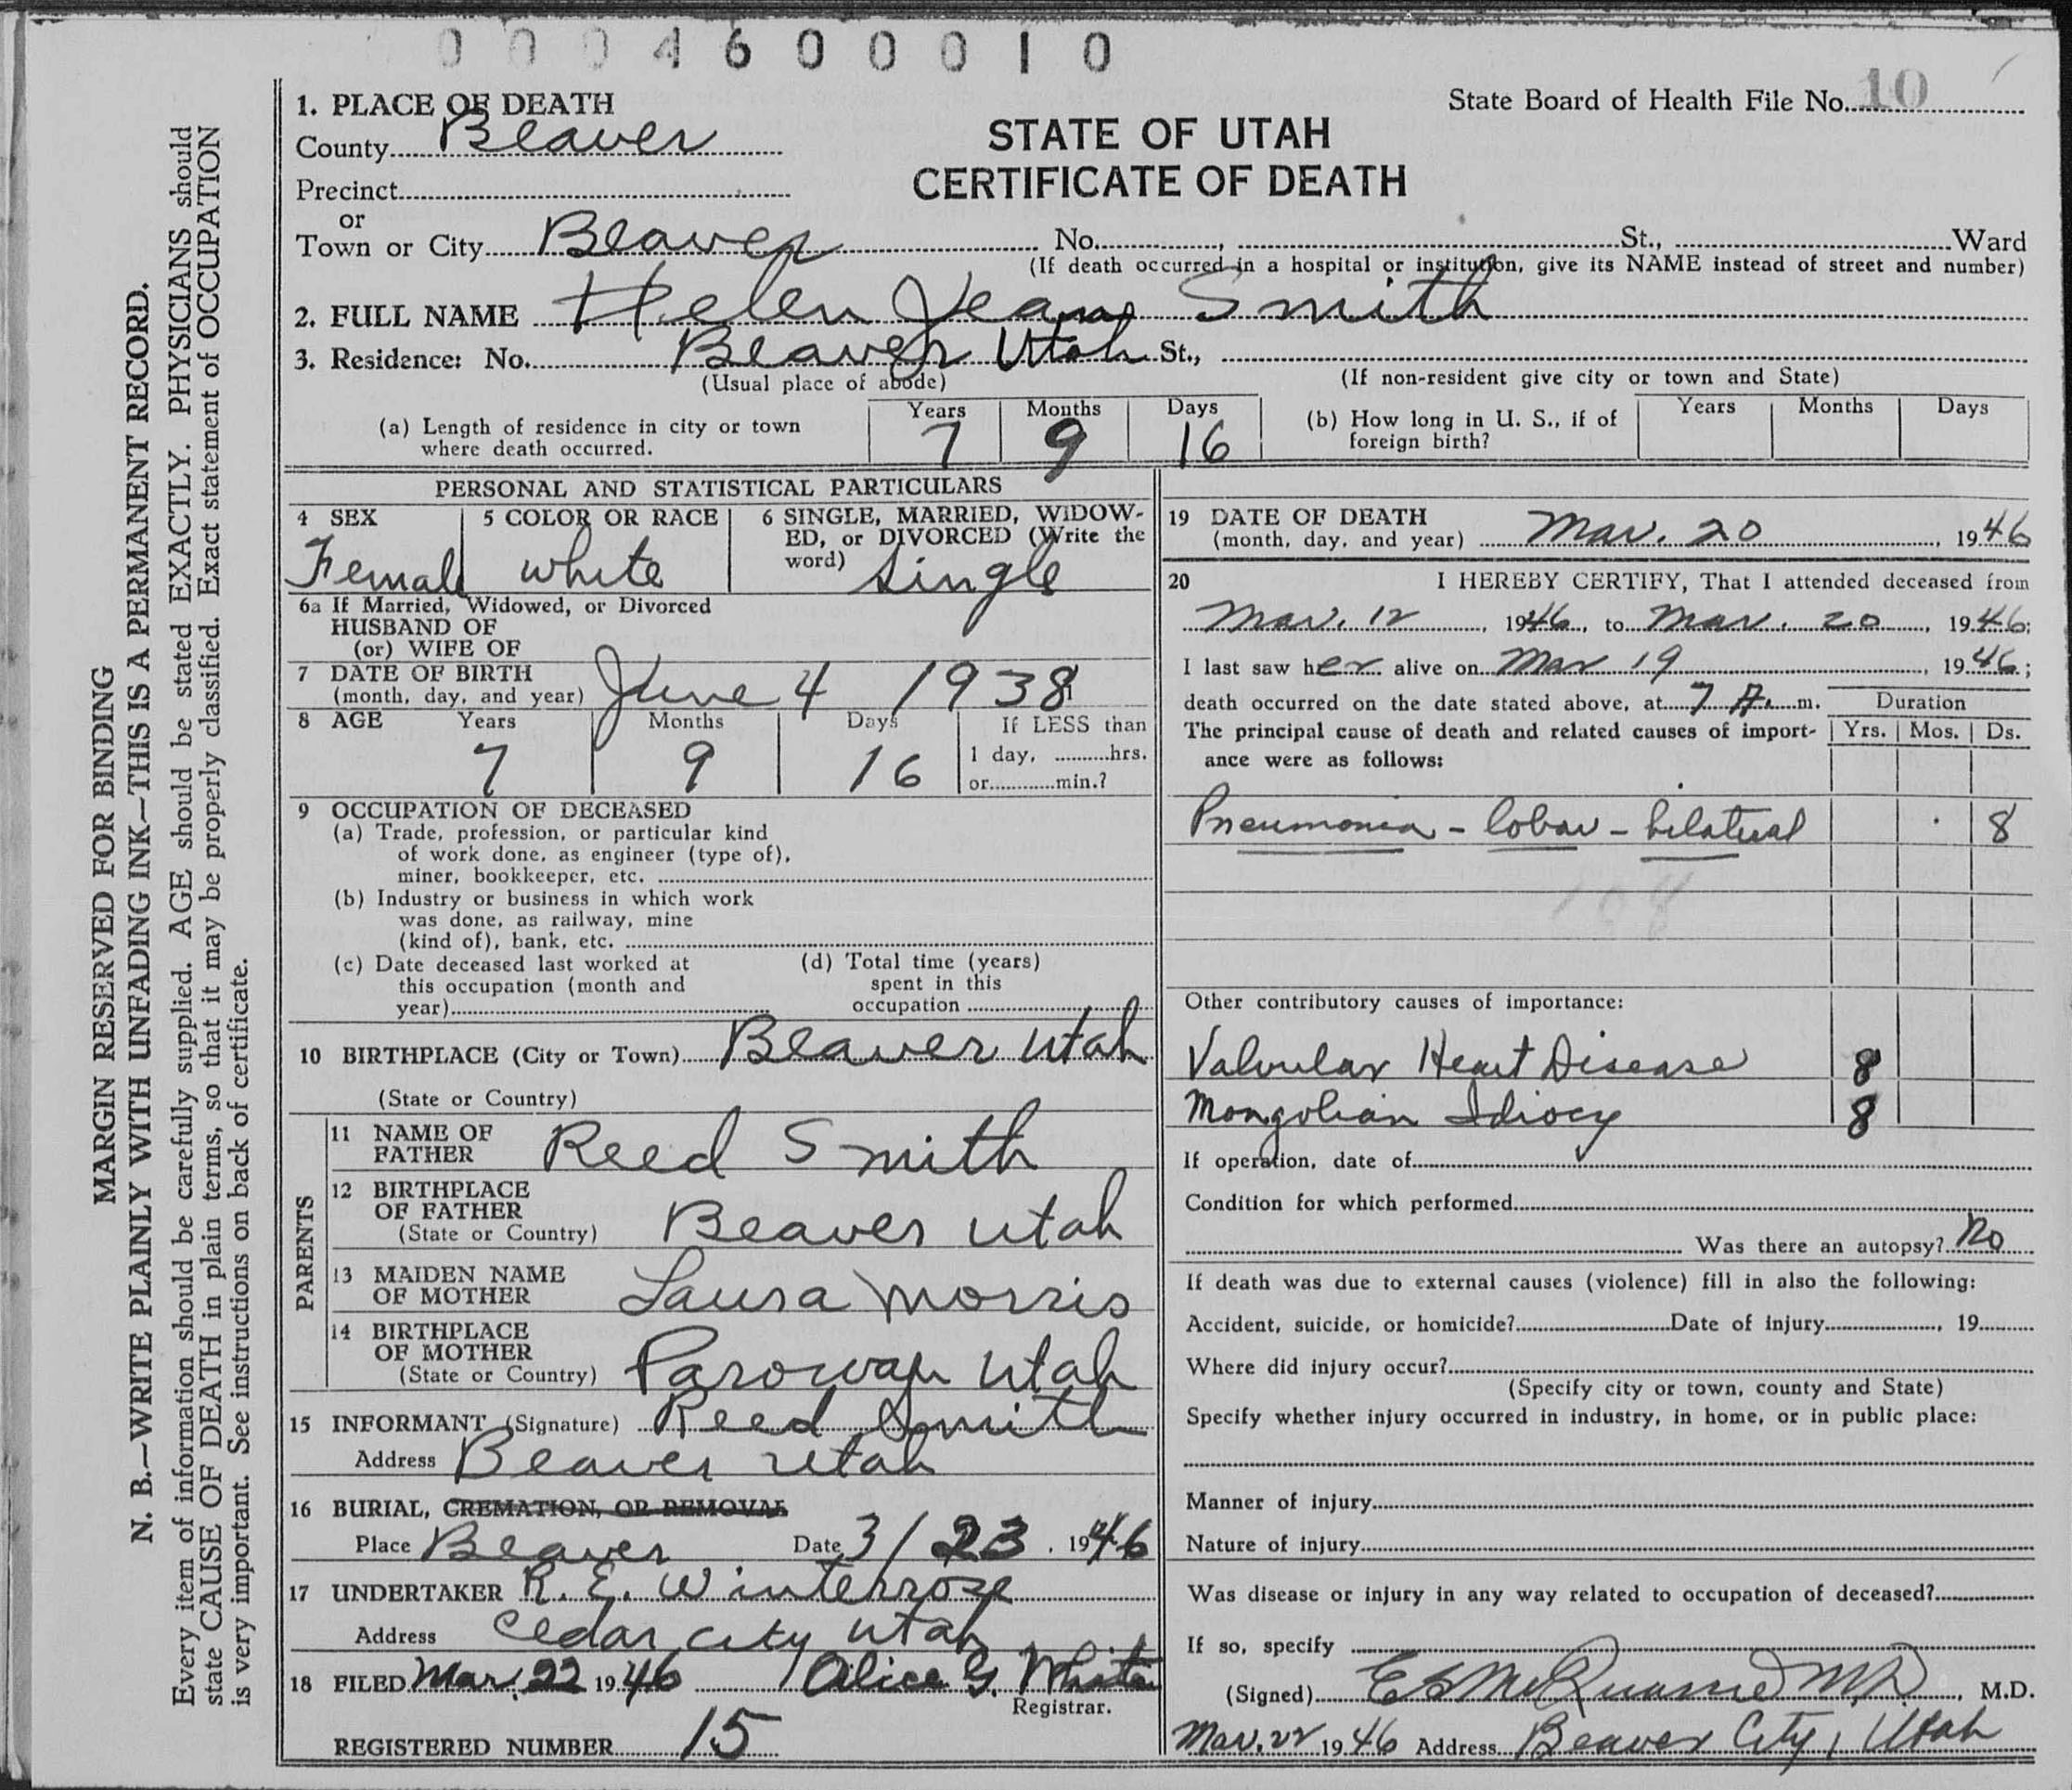 0004600010
1. PLACE OF DEATH
State Board of Health File No. 10
County Beaver
STATE OF UTAH
CERTIFICATE OF DEATH
Precinct
or
Town or City Beaver No. , St., Ward
(If death occurred in a hospital or institution, give its NAME instead of street and number)
2. FULL NAME Helen Jean Smith
3. Residence: No. Beaver Utah St.,
(Usual place of abode) (If non-resident give city or town and State)
(a) Length of residence in city or town where death occurred. Years 7 Months 9 Days 16
(b) How long in U. S., if of foreign birth? Years Months Days
PERSONAL AND STATISTICAL PARTICULARS
4 SEX Female
5 COLOR OR RACE white
6 SINGLE, MARRIED, WIDOW-
ED, or DIVORCED (Write the
word) Single
6a If Married, Widowed, or Divorced
HUSBAND OF
(or) WIFE OF
7 DATE OF BIRTH
(month, day, and year) June 4 1938
8 AGE Years 7 Months 9 Days 16
If LESS than
1 day, hrs.
or min.?
9 OCCUPATION OF DECEASED
(a) Trade, profession, or particular kind
of work done, as engineer (type of),
miner, bookkeeper, etc.
(b) Industry or business in which work
was done, as railway, mine
(kind of), bank, etc.
(c) Date deceased last worked at
this occupation (month and
year)
(d) Total time (years)
spent in this
occupation
10 BIRTHPLACE (City or Town) Beaver Utah
(State or Country)
PARENTS
11 NAME OF
FATHER Reed Smith
12 BIRTHPLACE
OF FATHER
(State or Country) Beaver Utah
13 MAIDEN NAME
OF MOTHER Laura Morris
14 BIRTHPLACE
OF MOTHER
(State or Country) Parowan Utah
15 INFORMANT (Signature) Reed Smith
Address Beaver Utah
16 BURIAL, CREMATION, OR REMOVAL
Place Beaver Date 3/23, 1946
17 UNDERTAKER R. E. Winterrose
Address Cedar City Utah
18 FILED Mar. 22 1946 Alice G.
Registrar.
REGISTERED NUMBER 15
19 DATE OF DEATH
(month, day, and year) Mar. 20, 1946
20 I HEREBY CERTIFY, That I attended deceased from
Mar. 12, 1946, to Mar. 20, 1946;
I last saw her alive on Mar 19, 1946;
death occurred on the date stated above, at 7 A. m.
Duration
The principal cause of death and related causes of import-
ance were as follows:
Yrs. Mos. Ds.
Pneumonia - lobar - bilateral 8
Other contributory causes of importance:
Valvular Heart Disease 8
Mongolian Idiocy 8
If operation, date of
Condition for which performed
Was there an autopsy? No
If death was due to external causes (violence) fill in also the following:
Accident, suicide, or homicide? Date of injury , 19
Where did injury occur?
(Specify city or town, county and State)
Specify whether injury occurred in industry, in home, or in public place:
Manner of injury
Nature of injury
Was disease or injury in any way related to occupation of deceased?
If so, specify
(Signed) M.D., M.D.
Mar. 22 1946 Address Beaver City, Utah
MARGIN RESERVED FOR BINDING
N. B.—WRITE PLAINLY WITH UNFADING INK—THIS IS A PERMANENT RECORD.
Every item of information should be carefully supplied. AGE should be stated EXACTLY. PHYSICIANS should
state CAUSE OF DEATH in plain terms, so that it may be properly classified. Exact statement of OCCUPATION
is very important. See instructions on back of certificate.